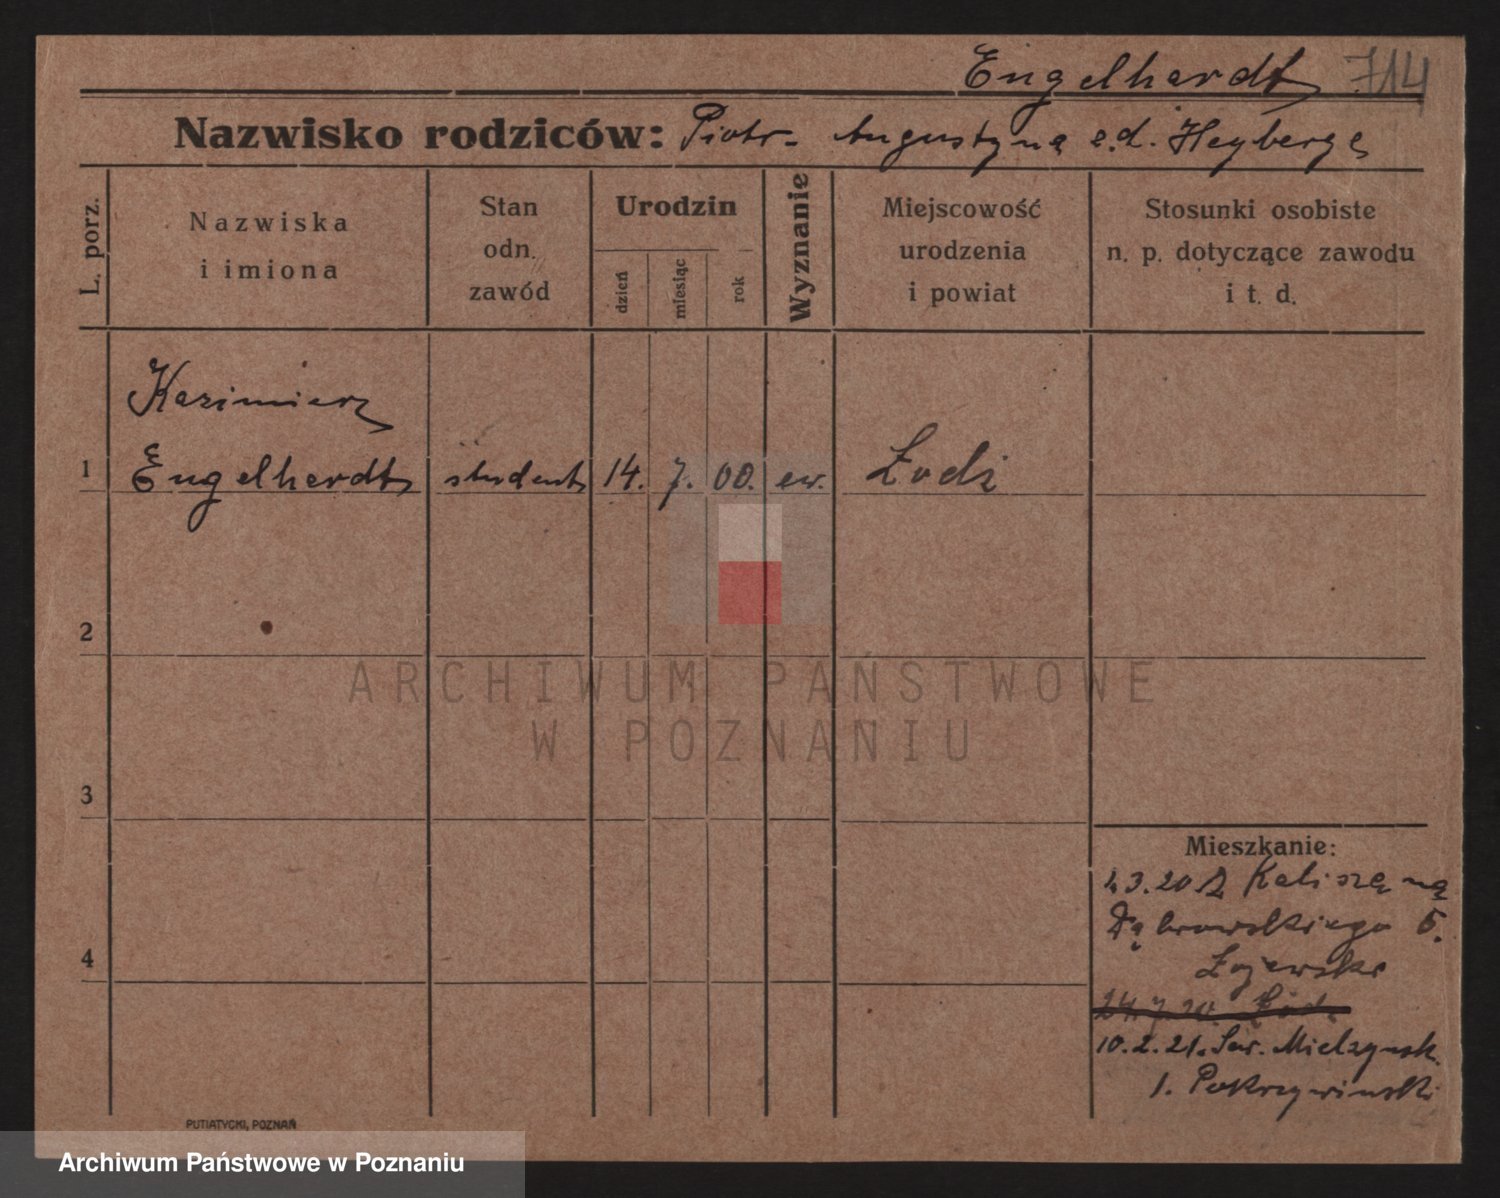 Engelhardt 714
Nazwisko rodziców: Piotr - Augustyna z.d. Heyberg
L. porz.
Nazwiska
i imiona
Stan
odn.
zawód
Urodzin
dzień
miesiąc
rok
Wyznanie
Miejscowość
urodzenia
i powiat
Stosunki osobiste
n. p. dotyczące zawodu
i t. d.
Kazimierz
1 Engelhardt student 14. 7. 00. ew. Łodź
2
ARCHIWUM PAŃSTWOWE
W POZNANIU
3
4
Mieszkanie:
3.20 Z Kalisza na
Dąbrowskiego 5.
Łojewska
24.7.20. Łódź
10.2.21. Sew. Mielżyńsk.
1. Pokrzywiński
PUTIATYCKI, POZNAŃ
Archiwum Państwowe w Poznaniu